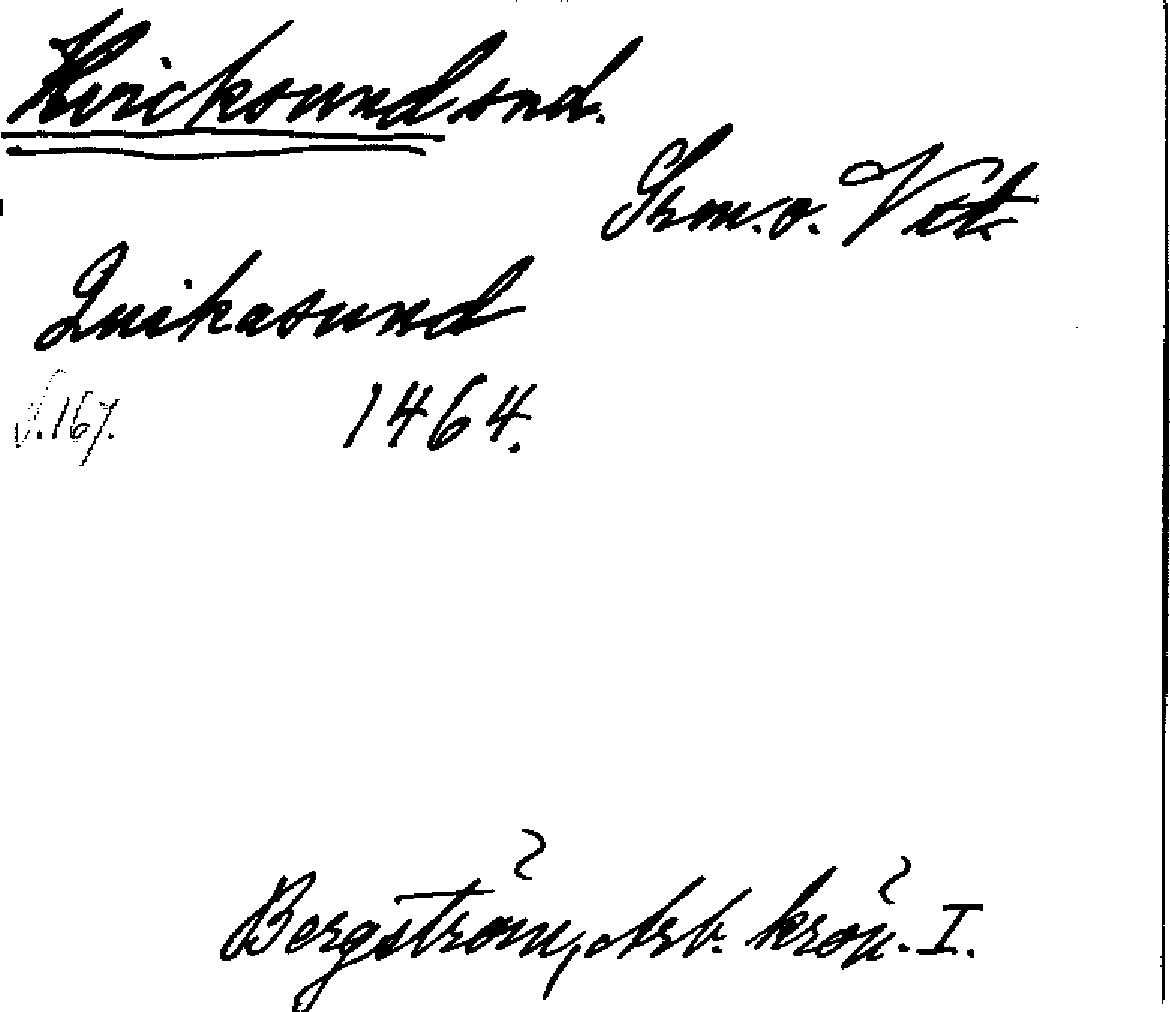 Kvicksund snd.
Srm. o. Vstl.
Quikasund
S. 167. 1464.
Bergström, Arb. krön. I.